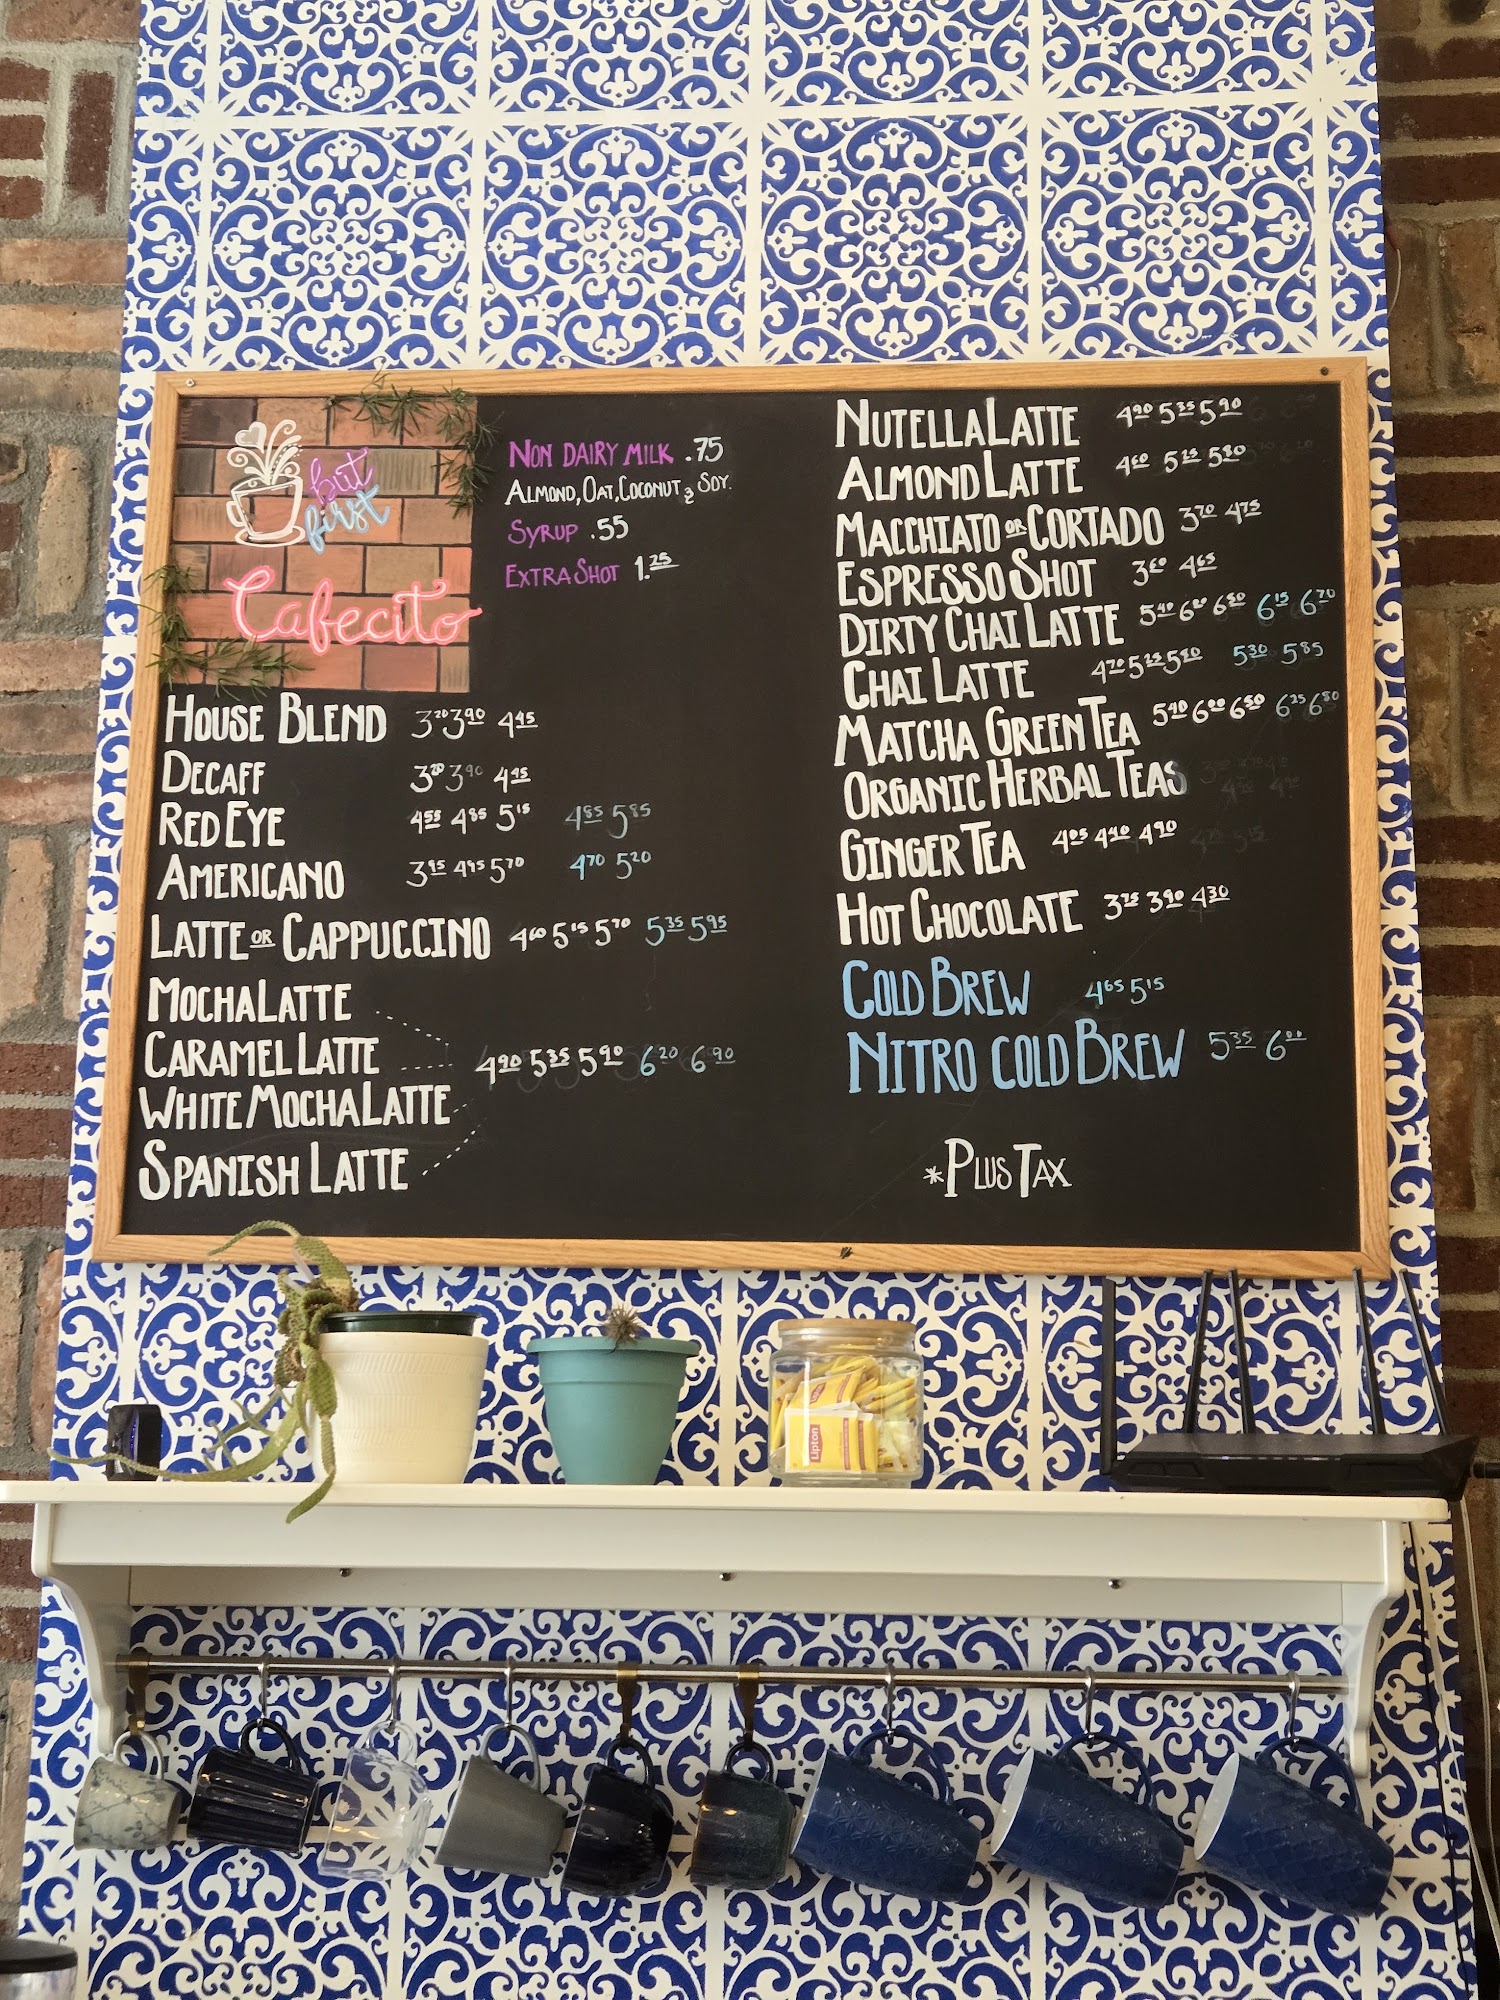 but
first
Cafecito
NON DAIRY MILK .75
ALMOND, OAT, COCONUT & SOY.
SYRUP .55
EXTRA SHOT 1.25
HOUSE BLEND 3.20 3.90 4.45
DECAFF 3.20 3.90 4.45
RED EYE 4.55 4.85 5.15 4.85 5.85
AMERICANO 3.95 4.45 5.70 4.70 5.20
LATTE OR CAPPUCCINO 4.60 5.15 5.70 5.35 5.95
MOCHA LATTE
CARAMEL LATTE 4.90 5.35 5.90 6.20 6.90
WHITE MOCHA LATTE
SPANISH LATTE
NUTELLA LATTE 4.90 5.35 5.90
ALMOND LATTE 4.60 5.25 5.80
MACCHIATO OR CORTADO 3.70 4.75
ESPRESSO SHOT 3.60 4.65
DIRTY CHAI LATTE 5.40 6.00 6.50 6.15 6.70
CHAI LATTE 4.70 5.25 5.80 5.30 5.85
MATCHA GREEN TEA 5.40 6.00 6.50 6.25 6.80
ORGANIC HERBAL TEAS
GINGER TEA 4.05 4.40 4.90
HOT CHOCOLATE 3.75 3.90 4.30
COLD BREW 4.65 5.15
NITRO COLD BREW 5.35 6.00
*PLUS TAX
Lipton